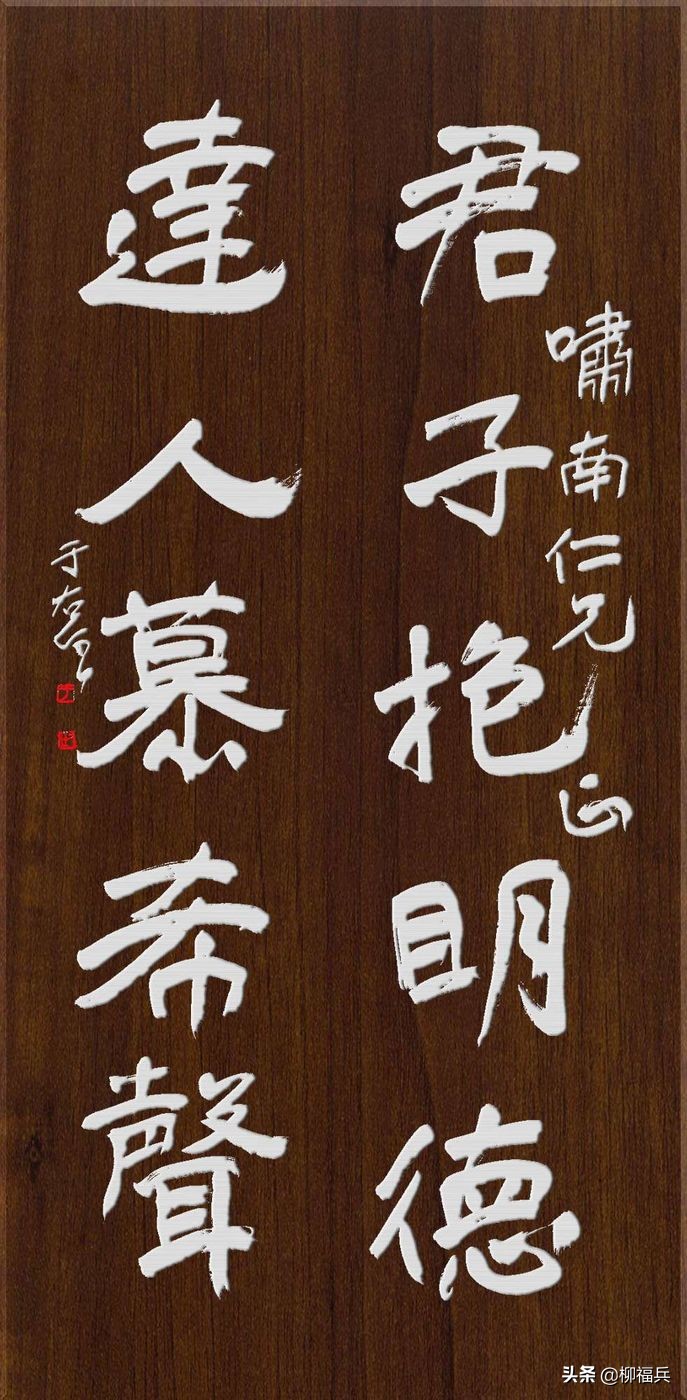 君子抱明德
嘯南仁兄正
達人慕希聲
于右任
头条 @柳福兵